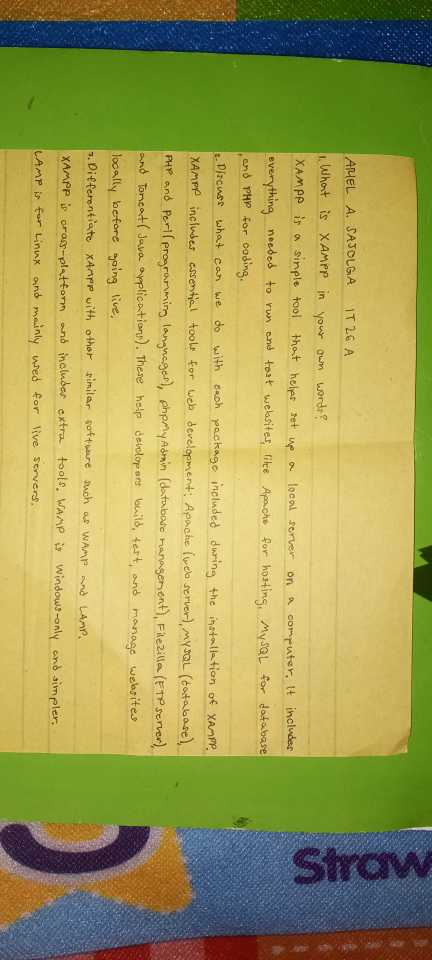 ARIEL A. SAJOLGA IT26A
1. What is XAMPP in your own words?
XAMPP is a simple tool that helps set up a local server on a computer. It includes
everything needed to run and test websites, like Apache for hosting, MySQL for database
, and PHP for coding.
2. Discuss what can we do with each package included during the installation of XAMPP.
XAMPP includes essential tools for web development: Apache (web server), MYSQL (database),
PHP and Perl (programming languages), phpMyAdmin (database management), FileZilla (FTP server),
and Tomcat (Java applications). These help developers build, test, and manage websites
locally before going live.
3. Differentiate XAMPP with other similar software such as WAMP and LAMP.
XAMPP is cross-platform and includes extra tools. WAMP is Windows-only and simpler.
LAMP is for Linux and mainly used for live servers.
Straw